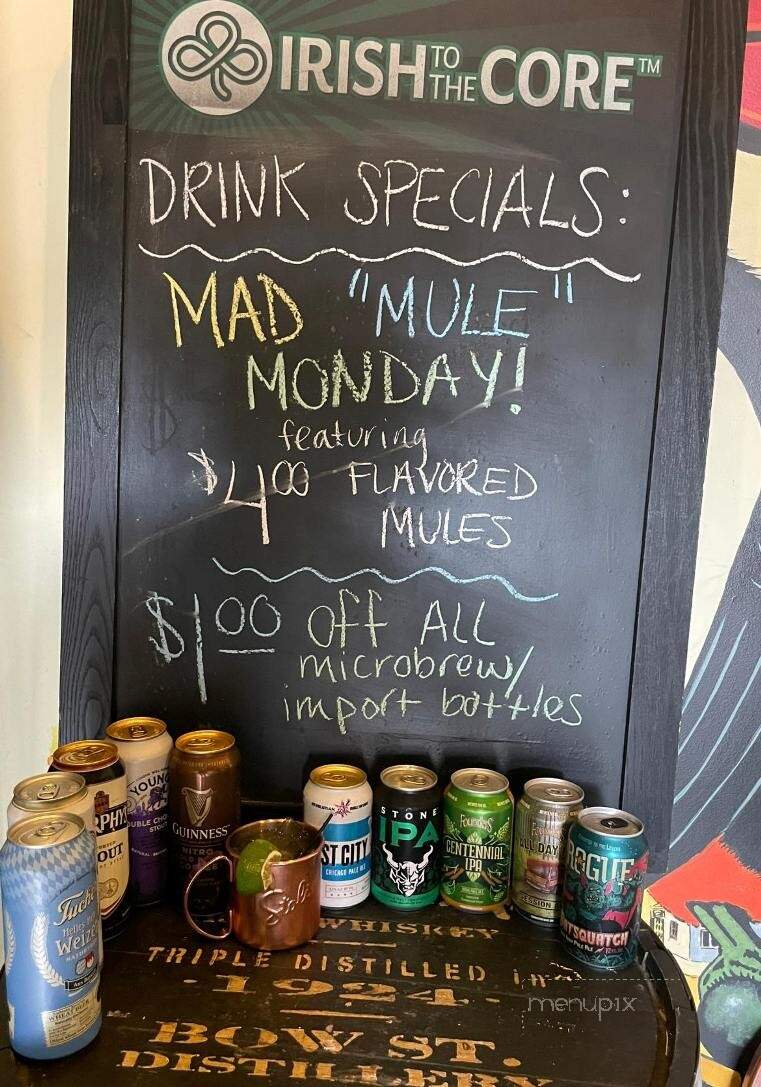 IRISH TO THE CORE™
DRINK SPECIALS:
MAD "MULE"
MONDAY!
featuring
$4.00 FLAVORED
MULES
$1.00 off ALL
microbrew/
import bottles
YOUNG
DOUBLE CHO
STOUT
RPHY
OUT
GUINNESS
NITRO
ST CITY
CHICAGO PALE ALE
STONE
IPA
Founders
CENTENNIAL
IPA
ALL DAY
SESSION
ROGUE
TSQUATCH
Tuche
Helles
Weize
WHISKEY
TRIPLE DISTILLED
1924
BOW ST.
DISTILLERY
menupix